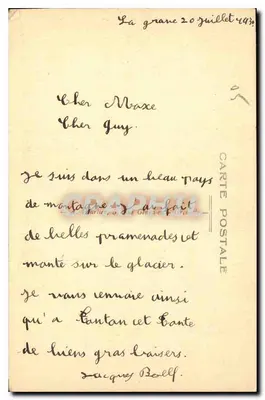 La grave 20 juillet 1934
Cher Maxe
Cher Guy.
je suis dans un beau pays
de montagne j'ai fait
de belles promenades et
monté sur le glacier.
je vous envoie ainsi
qu'a Tonton et Tante
de biens gras baisers.
Jacques
CARTE POSTALE